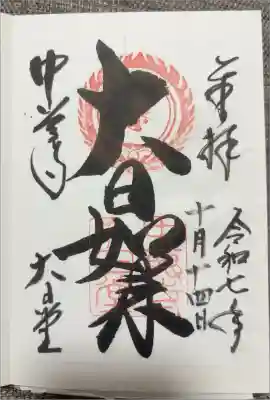 奉拝
令和七年
十月十四日
大日如来
中善寺
大日堂